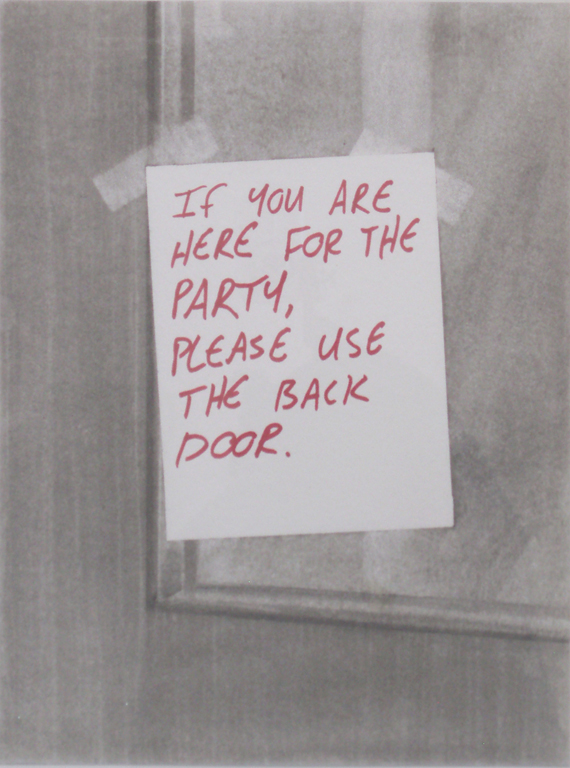 IF YOU ARE
HERE FOR THE
PARTY,
PLEASE USE
THE BACK
DOOR.